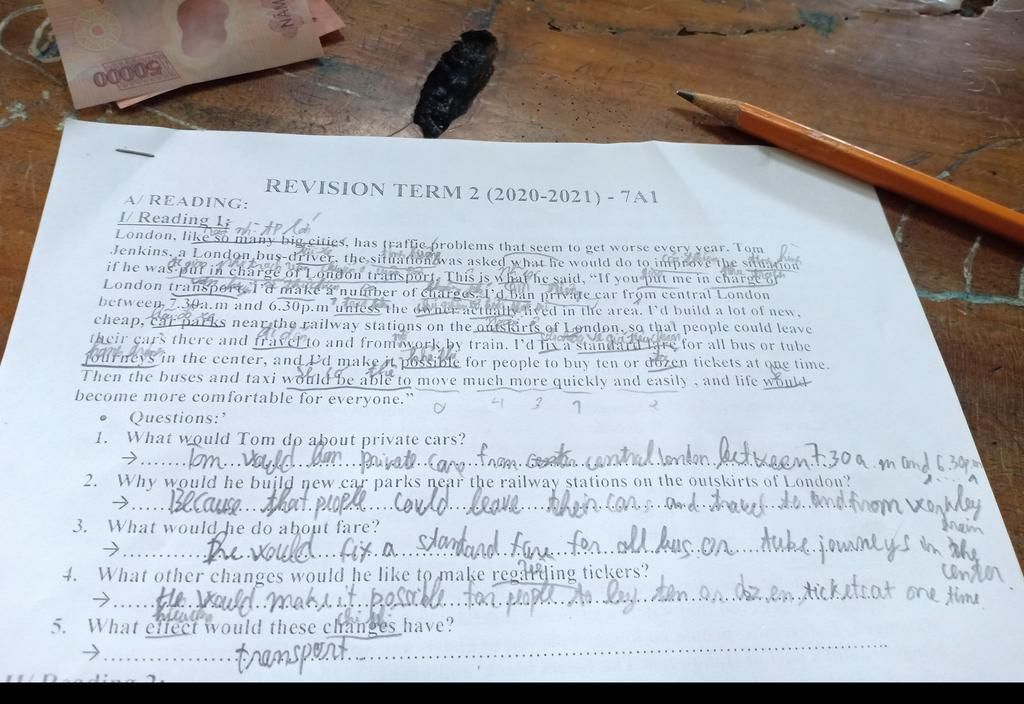 50000
NĂM
REVISION TERM 2 (2020-2021) - 7A1
A/ READING:
I/ Reading 1:
London, like so many big cities, has traffic problems that seem to get worse every year. Tom
Jenkins, a London bus-driver, the situation was asked what he would do to improve the situation
if he was put in charge of London transport. This is what he said, “If you put me in charge of
London transport, I’d make a number of charges. I’d ban private car from central London
between 7.30a.m and 6.30p.m unless the owner actually lived in the area. I’d build a lot of new,
cheap, car parks near the railway stations on the outskirts of London, so that people could leave
their cars there and travel to and from work by train. I’d fix a standard fare for all bus or tube
in the center, and I’d make it possible for people to buy ten or dozen tickets at one time.
Then the buses and taxi would be able to move much more quickly and easily , and life would
become more comfortable for everyone.”
• Questions:’
1. What would Tom do about private cars?
→ Tom would ban private care from central london between 7.30a.m and 6.30p.m
2. Why would he build new car parks near the railway stations on the outskirts of London?
→ Because that people could leave their cars and travel to and from work by
train
3. What would he do about fare?
→ He would fix a standard fare for all bus or tube journeys in the
center
4. What other changes would he like to make regarding tickers?
→ He would make it possible for people to buy ten or dozen tickets at one time
5. What effect would these changes have?
→ transport
II/ Reading 2: